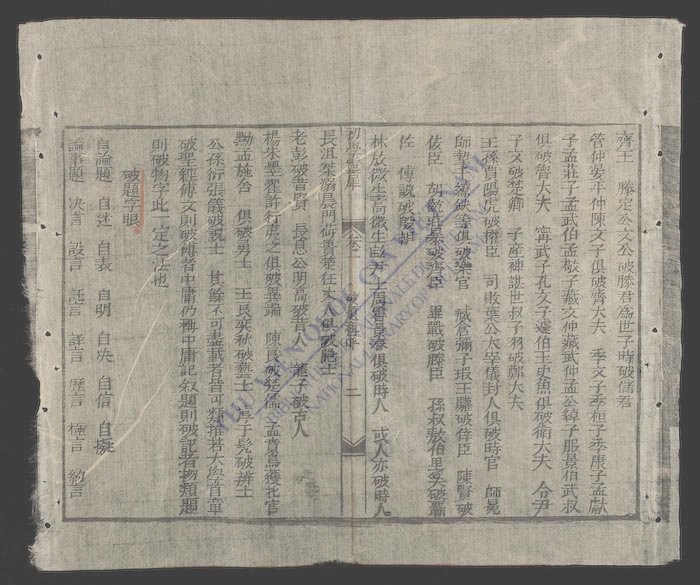 齊王 滕定公文公破滕君爲世子時破儲君
管仲晏平仲陳文子俱破齊大夫 季文子季桓子季康子孟獻
子孟莊子孟武伯孟敬子臧文仲臧武仲孟公綽子服景伯武叔
俱破魯大夫 甯武子孔文子蘧伯玉史魚俱破衛大夫 令尹
子文破楚卿 子産裨諶世叔子羽破鄭大夫
王孫賈陽虎破權臣 司敗葉公大宰儀封人俱破時官 師冕
師摯干繚缺等俱破樂官 臧倉彌子瑕王驩破倖臣 陳賢破
佐臣 胡齕莊暴破齊臣 畢戰破滕臣 孫叔敖伯里奚破霸
佐 傅說破殷相
林放微生高微生畝尹士 俱破時人 或人亦破時人
初學靈犀 卷一 二
長沮桀溺晨門荷蕢楚狂丈人俱破隱士
老彭破昔賢 長息公明高破昔人 龍子破古人
楊朱墨翟許行夷之俱破異端 陳良破楚儒 孟賁烏獲
孟施舍 俱破勇士 王良奕秋破藝士 淳于髡破辨士
公孫衍張儀破說士 其餘不可盡載者皆可類推若大學首章
破聖經傳文則破傳者中庸仍稱中庸記叙題則破記者物類題
則破物字此一定之法也
破題字眼
自論題 自述 自表 自明 自央 自信 自擬
論事題 決言 設言 託言 詳言 歷言 極言 約言
THU VIEN QUOC GIA
BIBLIOTHEQUE NATIONALE DU
NATIONAL LIBRARY OF